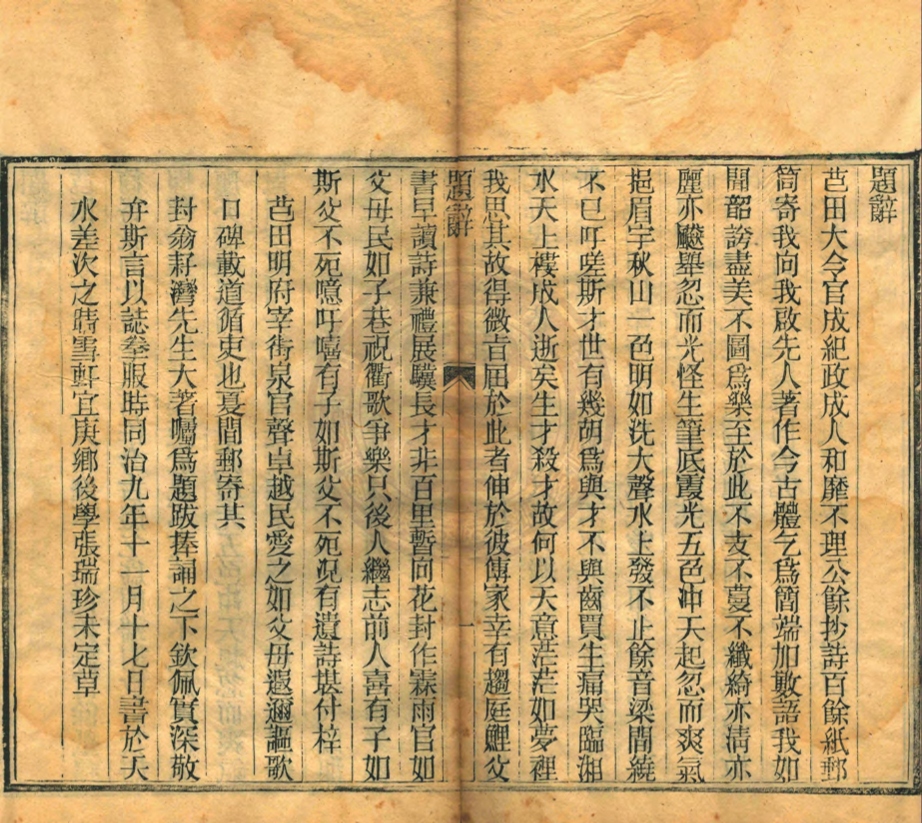 題辭
芑田大令官成紀政成人和靡不理公餘抄詩百餘紙郵
筒寄我向我啟先人著作今古體乞爲簡端加數語我如
聞韶謗盡美不圖爲樂至於此不支不蔓不纖綺亦淸亦
麗亦飈舉忽而光怪生筆底霞光五色冲天起忽而爽氣
挹眉宇秋山一色明如洗大聲水上發不止餘音梁間繞
不已吁嗟斯才世有幾胡爲與才不與齒賈生痛哭臨湘
水天上樓成人逝矣生才殺才故何以天意茫茫如夢裡
我思其故得微旨屈於此者伸於彼傳家幸有趨庭鯉父
題辭
一
書早讀詩兼禮展驥長才非百里暫向花封作霖雨官如
父母民如子巷祝衢歌爭樂只後人繼志前人喜有子如
斯父不死噫吁嘻有子如斯父不死況有遺詩堪付梓
芑田明府宰街泉官聲卓越民愛之如父母遐邇謳歌
口碑載道循吏也夏間郵寄其
封翁耔灣先生大著囑爲題跋捧誦之下欽佩實深敬
弁斯言以誌拳服時同治九年十一月十七日書於天
水差次之晴雪軒宜庚鄉後學張瑞珍未定草